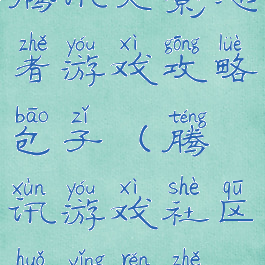 zhě yóu xì gōng lüè
者游戏攻略
bāo zǐ téng
包子（腾
xùn yóu xì shè qū
讯游戏社区
huǒ yǐng rěn zhě